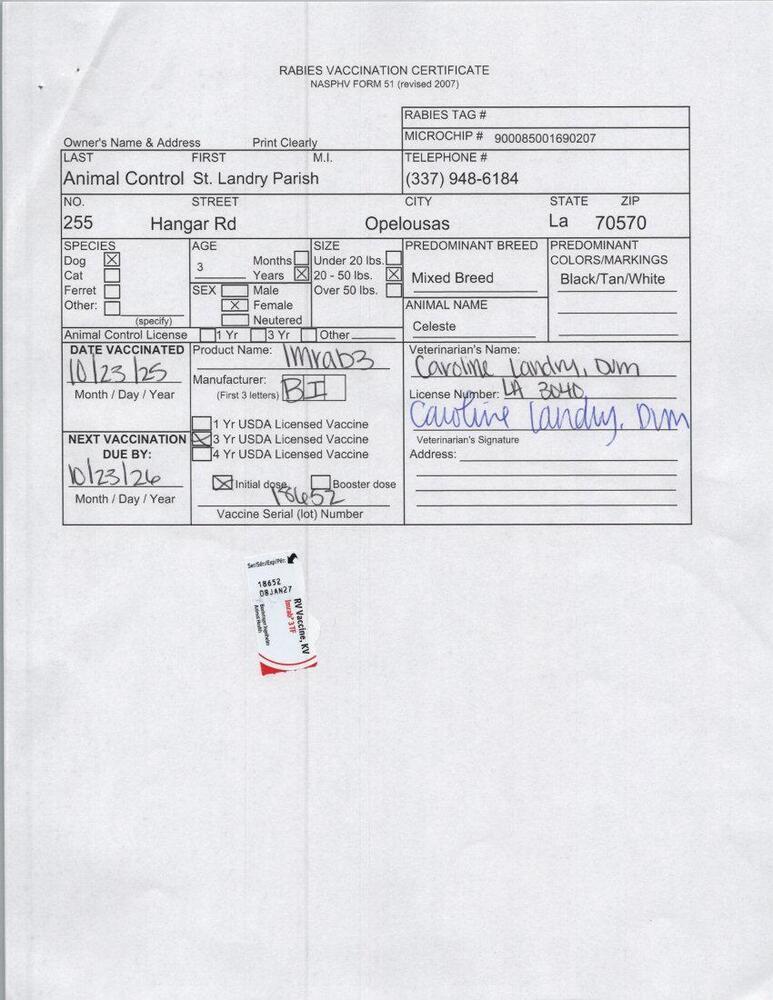 RABIES VACCINATION CERTIFICATE
NASPHV FORM 51 (revised 2007)
RABIES TAG #
MICROCHIP # 900085001690207
Owner's Name & Address Print Clearly
LAST FIRST M.I. TELEPHONE #
Animal Control St. Landry Parish (337) 948-6184
NO. STREET CITY STATE ZIP
255 Hangar Rd Opelousas La 70570
SPECIES AGE SIZE PREDOMINANT BREED PREDOMINANT
COLORS/MARKINGS
Dog Months Under 20 lbs.
3
Cat Years 20 - 50 lbs. Mixed Breed Black/Tan/White
Ferret SEX Male Over 50 lbs.
Other: Female ANIMAL NAME
(specify) Neutered Celeste
Animal Control License 1 Yr 3 Yr Other
DATE VACCINATED Product Name: Imrab3 Veterinarian's Name:
10/23/25 Caroline Landry, DVM
Month / Day / Year Manufacturer: License Number: LA 3040
(First 3 letters) BI
Caroline Landry, DVM
1 Yr USDA Licensed Vaccine
NEXT VACCINATION 3 Yr USDA Licensed Vaccine Veterinarian's Signature
DUE BY: 4 Yr USDA Licensed Vaccine Address:
10/23/26
Initial dose Booster dose
Month / Day / Year 18652
Vaccine Serial (lot) Number
18652
08JAN27
RV Vaccine, KV
Imrab® 3 TF
Boehringer Ingelheim
Animal Health